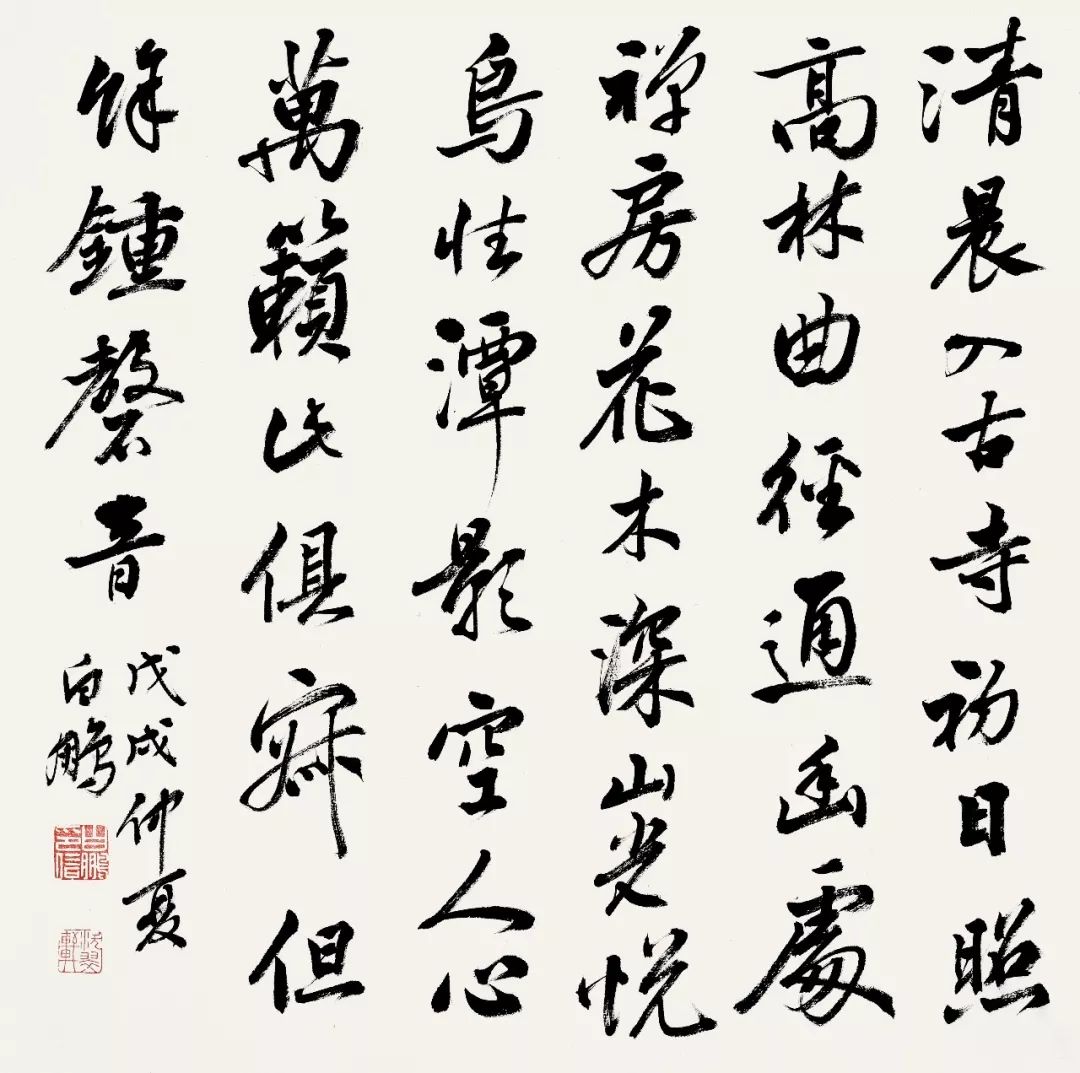 清晨入古寺初日照
高林曲徑通幽處
禅房花木深山光悦
鳥性潭影空人心
萬籟此俱寂但
餘鍾磬音
戊戌仲夏
白鵬